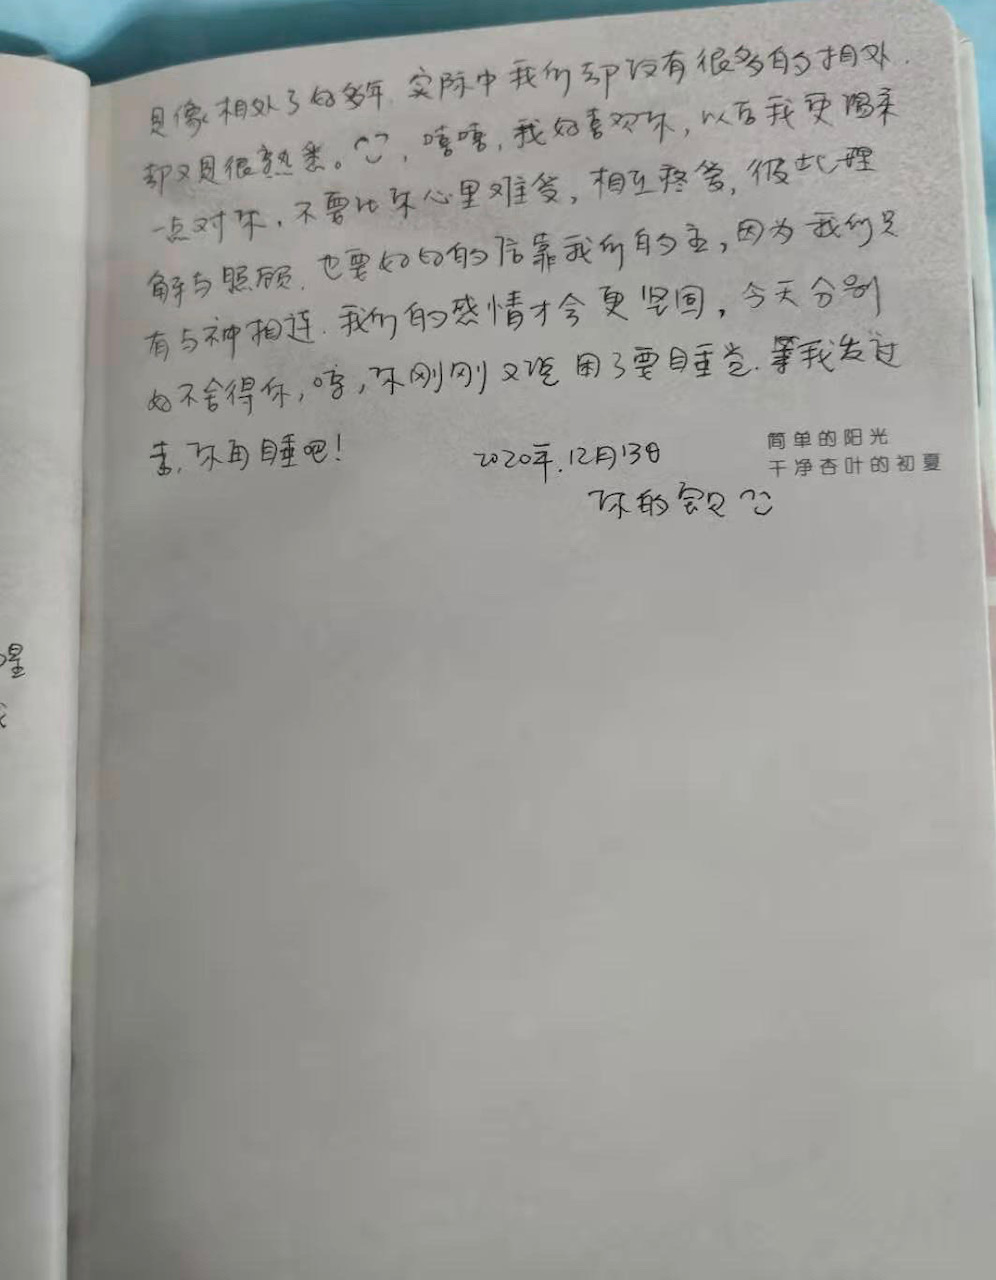 是像相处了好多年,实际中我们却没有很多的相处.
却又是很熟悉。,嘻嘻,我好喜欢你,以后我更温柔
一点对你,不要让你心里难受,相互疼爱,彼此理
解与照顾,也要好好的信靠我们的主,因为我们只
有与神相连.我们的感情才会更坚固,今天分别
好不舍得你,哼,你刚刚又说困了要睡觉.等我发过
去,你再睡吧!
2020年.12月13日
简单的阳光
干净杏叶的初夏
你的
醒